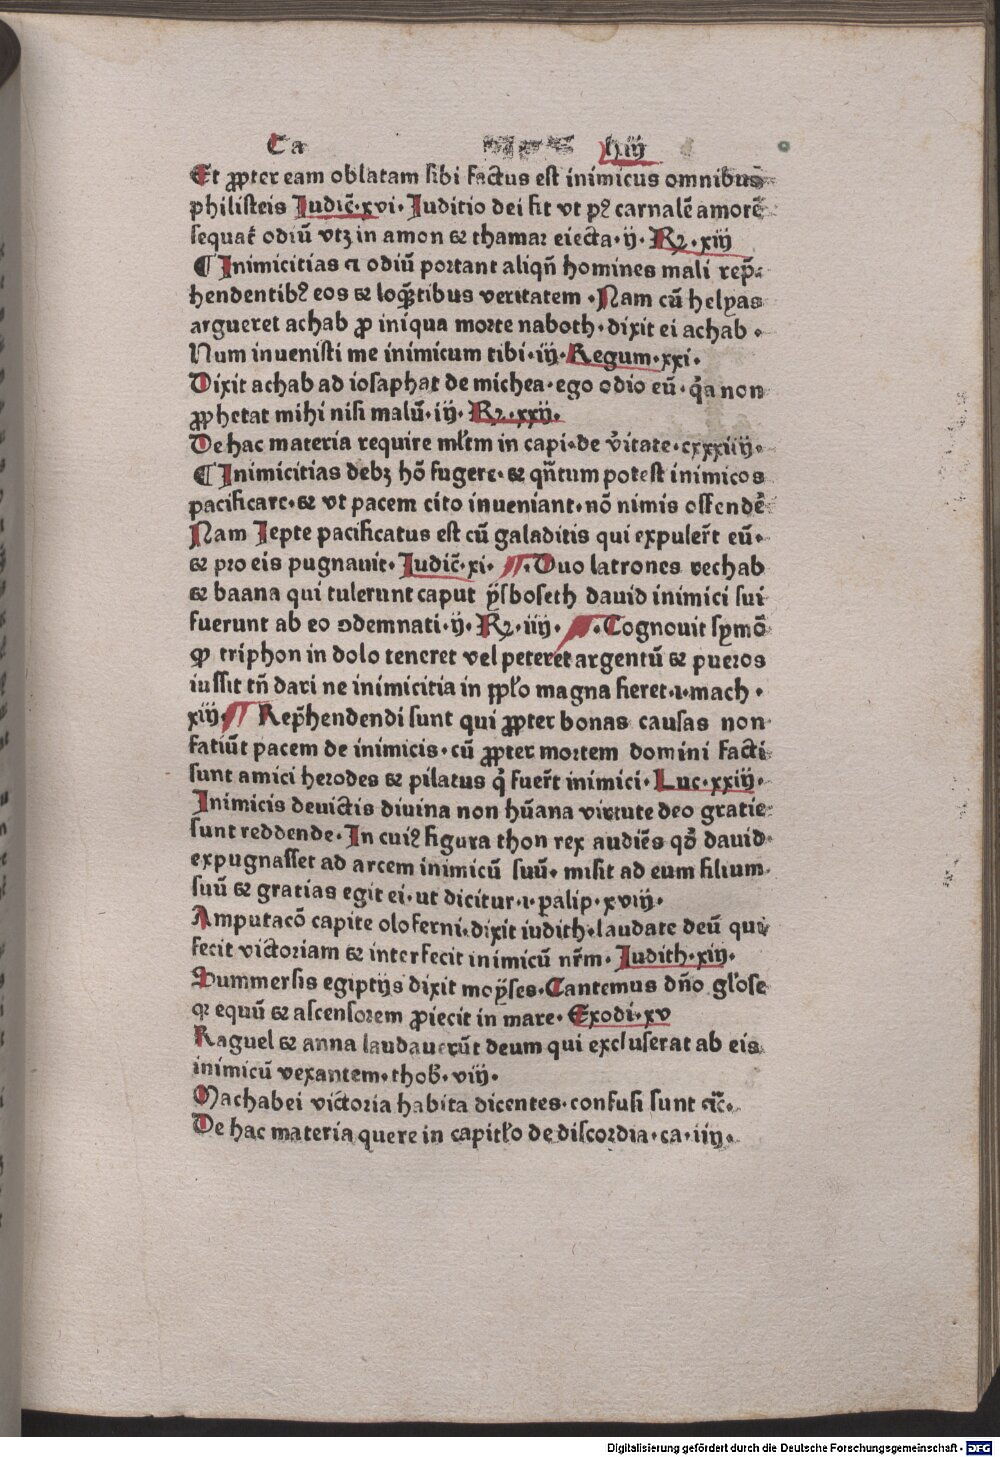 Ca lviij
Et ꝓpter eam oblatam sibi factus est inimicus omnibus
philisteis Judic̄·xvi· Juditio dei fit vt pꝰ carnalē amorē
sequat̉ odiū vtꝫ in amon ⁊ thamar eiecta·ij· Rꝝ·xiij
¶ Inimicitias ⁊ odiū portant aliqñ homines mali rep̄-
hendentibꝰ eos ⁊ loq̄ntibus veritatem ·Nam cū helyas
argueret achab ꝓ iniqua morte naboth·dixit ei achab ·
Num inuenisti me inimicum tibi·iij·Regum·xxi·
Dixit achab ad iosaphat de michea·ego odio eū·q̄a non
ꝓphetat mihi nisi malū·iij· Rꝝ·xxij·
De hac materia require ml̄tm in capi·de v̓itate·cxxxiiij·
¶ Inimicitias debꝫ hō fugere·⁊ qñtum potest inimicos
pacificare·⁊ vt pacem cito inueniant·nō nimis offendē
Nam Jepte pacificatus est cū galaditis qui expuler̄t eū·
⁊ pro eis pugnauit·Judic̄·xi· ¶·Duo latrones rechab
⁊ baana qui tulerunt caput ẏsboseth dauid inimici sui
fuerunt ab eo ↄdemnati·ij·Rꝝ·iiij· ¶·Cognouit symō
ꝙ triphon in dolo teneret vel peteret argentū ⁊ pueros
iussit tñ dari ne inimicitia in ppl̓o magna fieret·ı·mach·
xiij·¶ Rep̄hendendi sunt qui ꝓpter bonas causas non
fatiūt pacem de inimicis·cū ꝓpter mortem domini facti
sunt amici herodes ⁊ pilatus q̇ fuer̄t inimici·Luc·xxiij·
Inimicis deuictis diuina non hūana virtute deo gratie
sunt reddende·In cuiꝰ figura thon rex audiēs qꝺ̄ dauid
expugnasset ad arcem inimicū suū· misit ad eum filium
suū ⁊ gratias egit ei·ut dicitur·ı·palip·xviij·
Amputacō capite oloferni·dixit iudith·laudate deū qui
fecit victoriam ⁊ interfecit inimicū nr̄m·Judith·xiij·
Summersis egiptijs dixit moẏses·Cantemus dño gl̓ose
qꝛ equū ⁊ ascensorem ꝓiecit in mare·Exodi·xv
Raguel ⁊ anna laudauerūt deum qui excluserat ab eis
inimicū vexantem·thob̄·viij·
Machabei victoria habita dicentes·confusi sunt ⁊c̄·
De hac materia quere in capitl̓o de discordia·ca·iiij·
Digitalisierung gefördert durch die Deutsche Forschungsgemeinschaft · DFG